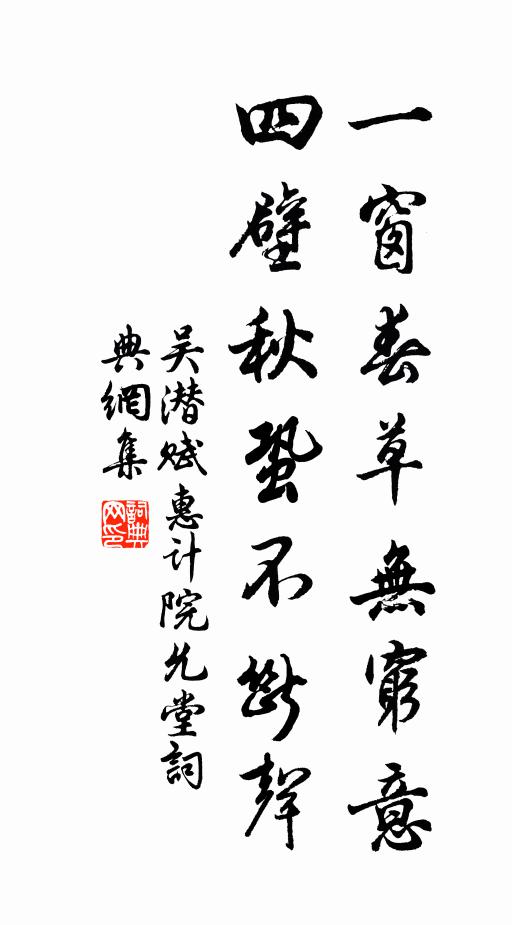 一窗春草無窮意
四壁秋蛩不斷聲
吴潜賦惠计院允堂詞
典網集
詞典网印